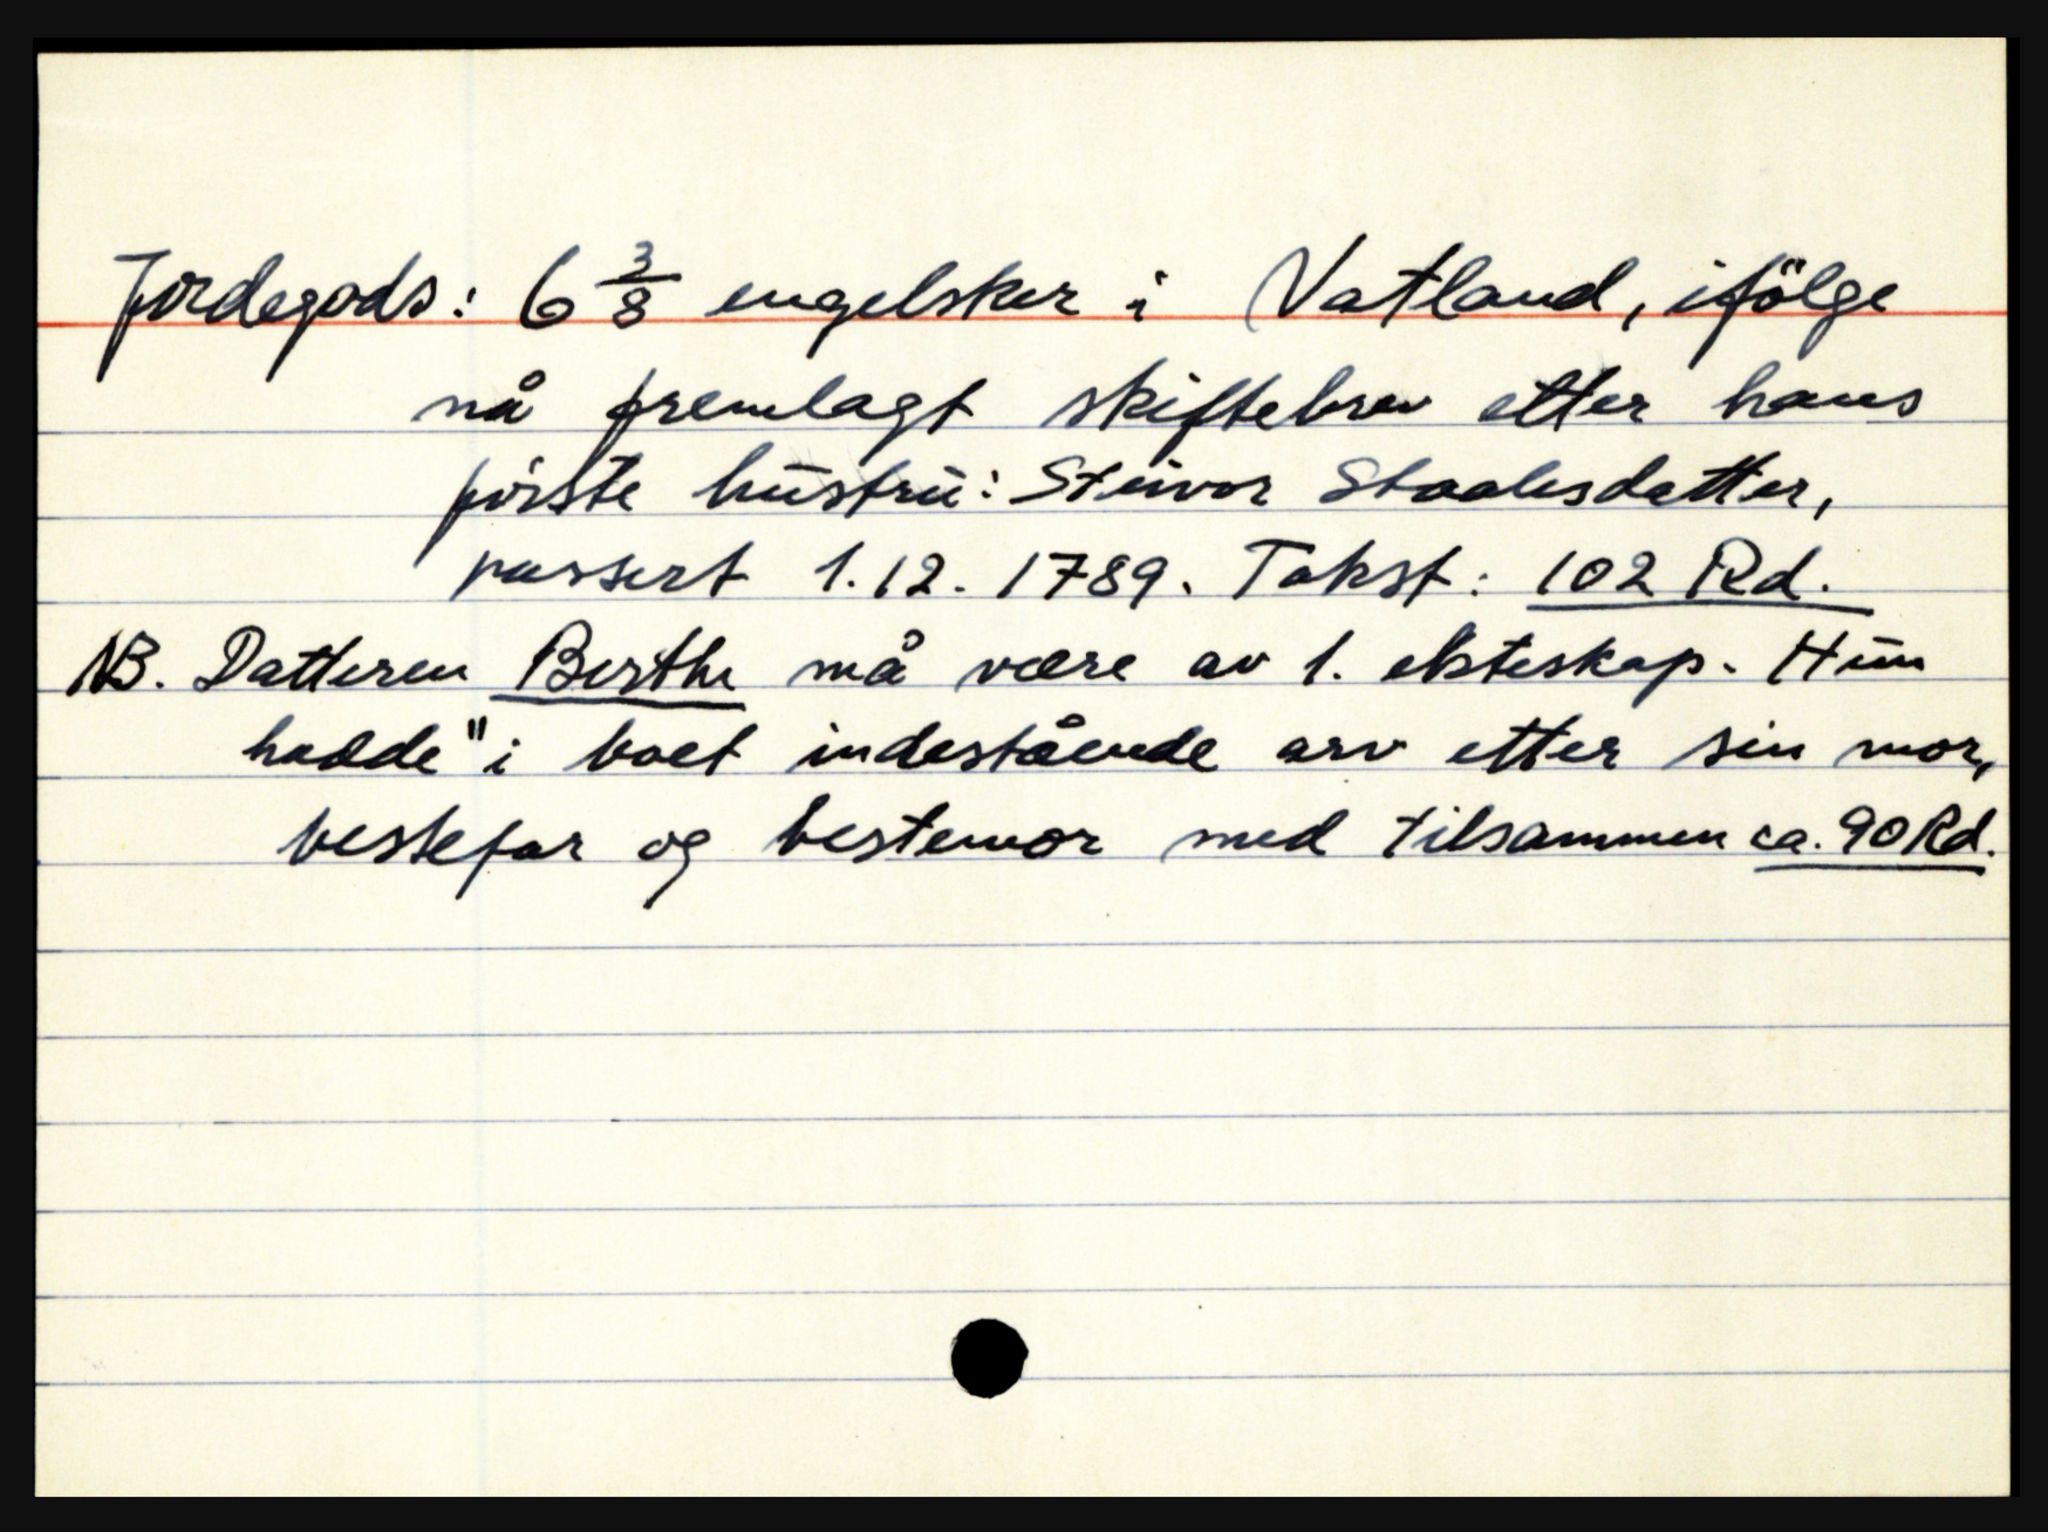 Jordegods: 6 3/8 engelsker i Vatland, ifölge
nå fremlagt skiftebrev etter hans
förste hustru: Steivor Staalesdatter,
passert 1.12.1789. Takst: 102 Rd.
NB. Datteren Berthe må være av 1. ekteskap. Hun
hadde "i boet indestående arv etter sin mor,
bestefar og bestemor med tilsammen ca. 90 Rd.